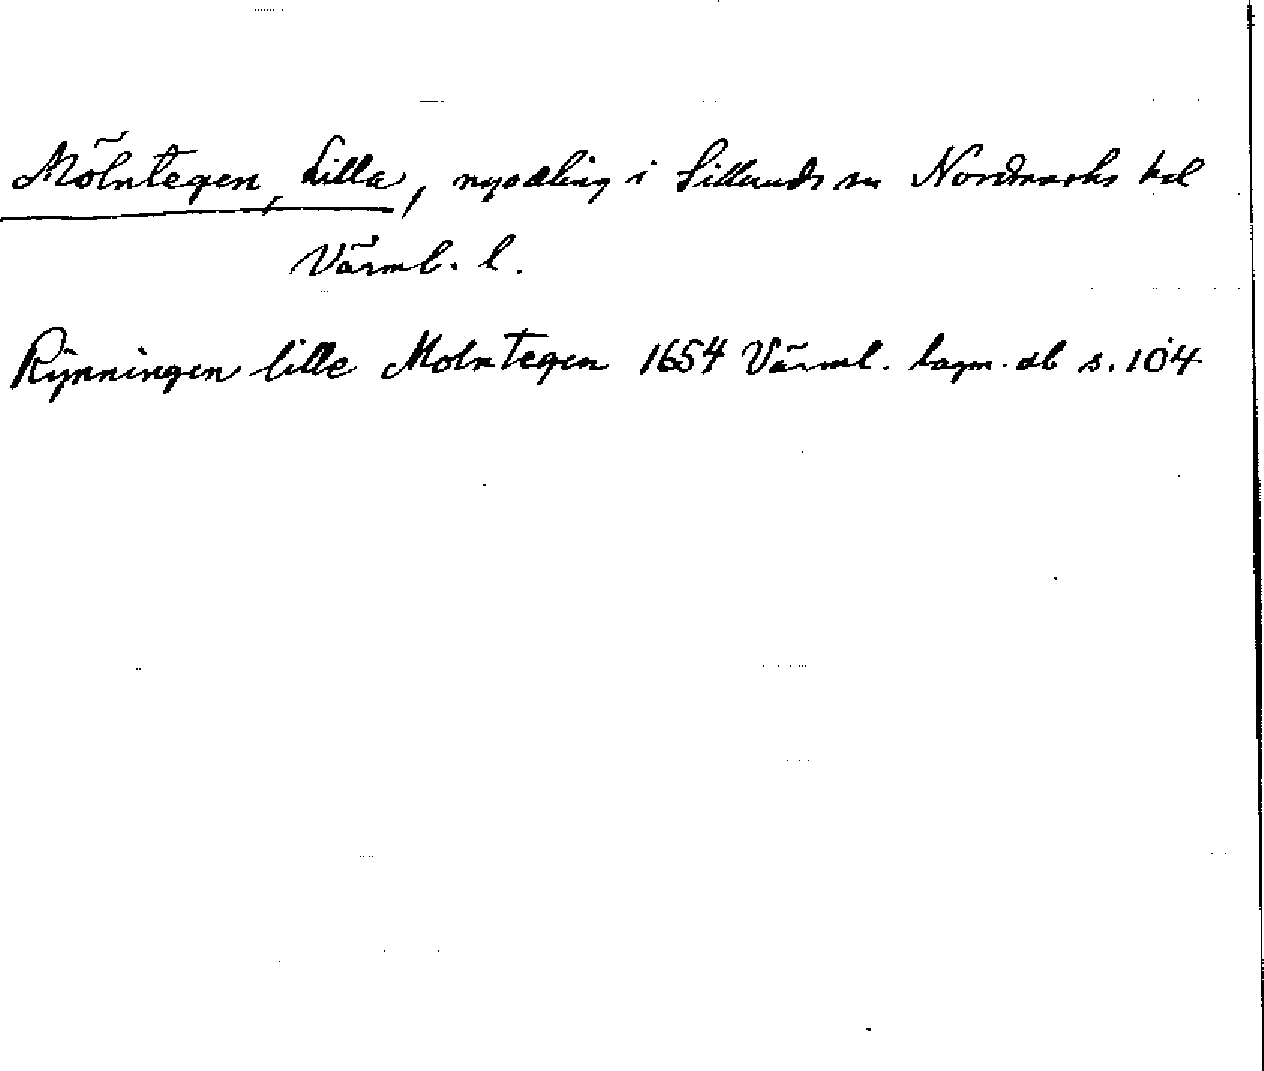 Mölntegen, Lilla, nyodling i Silleruds sn Nordmarks hd
Värml. l.
Rijnningen lille Molntegen 1654 Värml. lagm. db s. 104